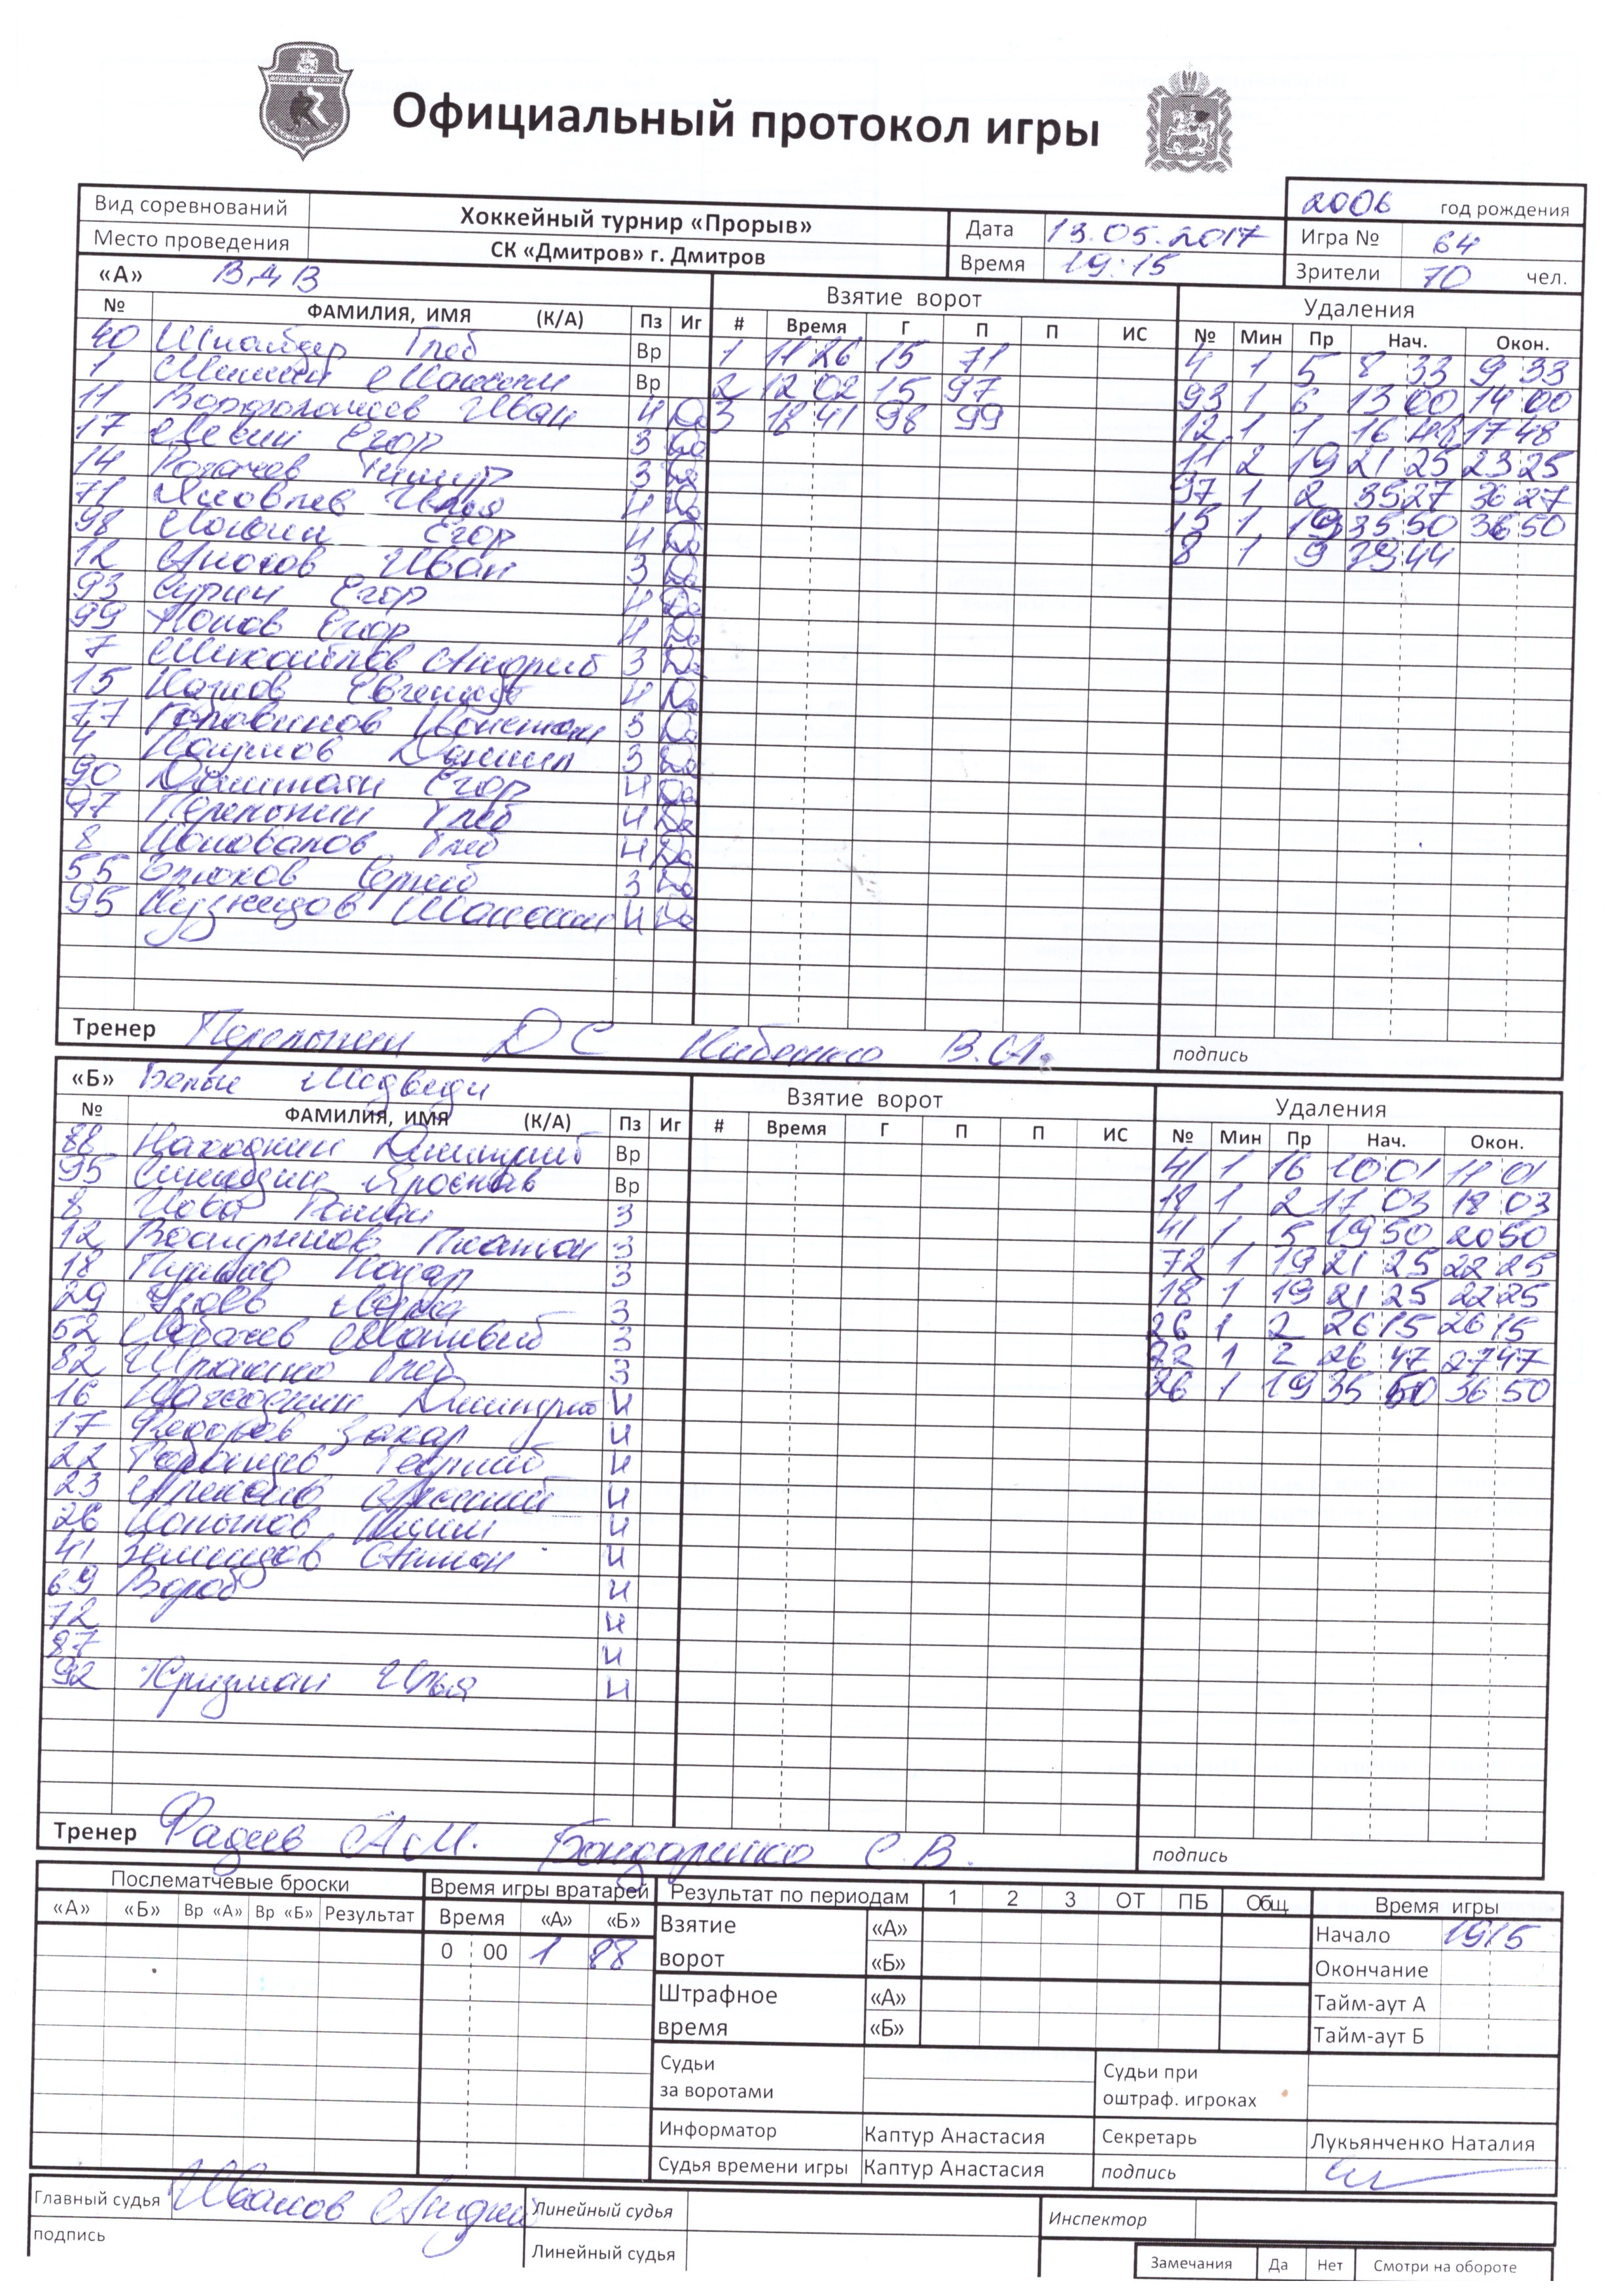 Официальный протокол игры
2006 год рождения
Вид соревнований Хоккейный турнир «Прорыв» Дата 13.05.2017 Игра № 64
Место проведения СК «Дмитров» г. Дмитров Время 19:15 Зрители 70 чел.
«А» ВДВ Взятие ворот Удаления
№ ФАМИЛИЯ, ИМЯ (К/А) Пз Иг # Время Г П П ИС № Мин Пр Нач. Окон.
40 Шнайдер Глеб Вр 1 11 26 15 71 4 1 5 8 33 9 33
1 Вр 2 12 02 15 97 93 1 6 13 00 14 00
11 Варфоломеев Иван Н Да 3 18 41 98 99 12 1 1 16 48 17 48
17 Левин Егор З Да 11 2 19 21 25 23 25
14 Рогачев Тимур З Да 97 1 2 35 27 36 27
71 Яковлев Илья Н Да 15 1 19 35 50 36 50
98 Егор Н Да 8 1 9 39 44
12 Аносов Иван З Да
93 Сурин Егор Н Да
99 Попов Егор Н Да
7 Андрей З Да
15 Евгений Н Да
77 Константин З Да
4 Даниил З Да
90 Егор Н Да
97 Переполкин Глеб Н Да
8 Коновалов Глеб Н Да
55 Сергей З Да
95 Кузнецов Н Да
Тренер Д С В.А.
подпись
«Б» Белые Медведи Взятие ворот Удаления
№ ФАМИЛИЯ, ИМЯ (К/А) Пз Иг # Время Г П П ИС № Мин Пр Нач. Окон.
88 Находкин Дмитрий Вр 41 1 16 10 01 11 01
95 Ярослав Вр 18 1 2 17 03 18 03
8 Роман З 41 1 5 19 50 20 50
12 Востриков Платон З 72 1 19 21 25 22 25
18 Назар З 18 1 19 21 25 22 25
29 З 26 1 2 26 15 26 15
52 Матвей З 72 1 2 26 47 27 47
82 Глеб З 26 1 19 35 50 36 50
16 Дмитрий Н
17 Федоров Захар Н
22 Георгий Н
23 Арсений Н
26 Копылов Н
41 Земцов Антон Н
69 Вороб Н
72 Н
87 Н
92 Кризман Илья Н
Тренер Фадеев А.М. Бондаренко С.В.
подпись
Послематчевые броски Время игры вратарей Результат по периодам 1 2 3 ОТ ПБ Общ. Время игры
«А» «Б» Вр «А» Вр «Б» Результат Время «А» «Б» Взятие ворот «А» Начало 19 15
0 00 1 88 «Б» Окончание
Штрафное время «А» Тайм-аут А
«Б» Тайм-аут Б
Судьи за воротами Судьи при оштраф. игроках
Информатор Каптур Анастасия Секретарь Лукьянченко Наталия
Судья времени игры Каптур Анастасия подпись
Главный судья Иванов Андрей Линейный судья Инспектор
подпись Линейный судья
Замечания Да Нет Смотри на обороте